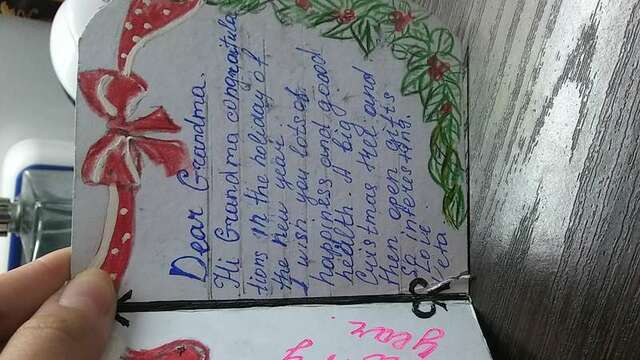 Dear Grandma.
Hi Grandma congraitula
tions in the holiday of
the new year
I wish you lots of
happiness and goood
heelth. A big
Cristmas tree and
then open gifts
So interesting.
Love
Veta.
year.